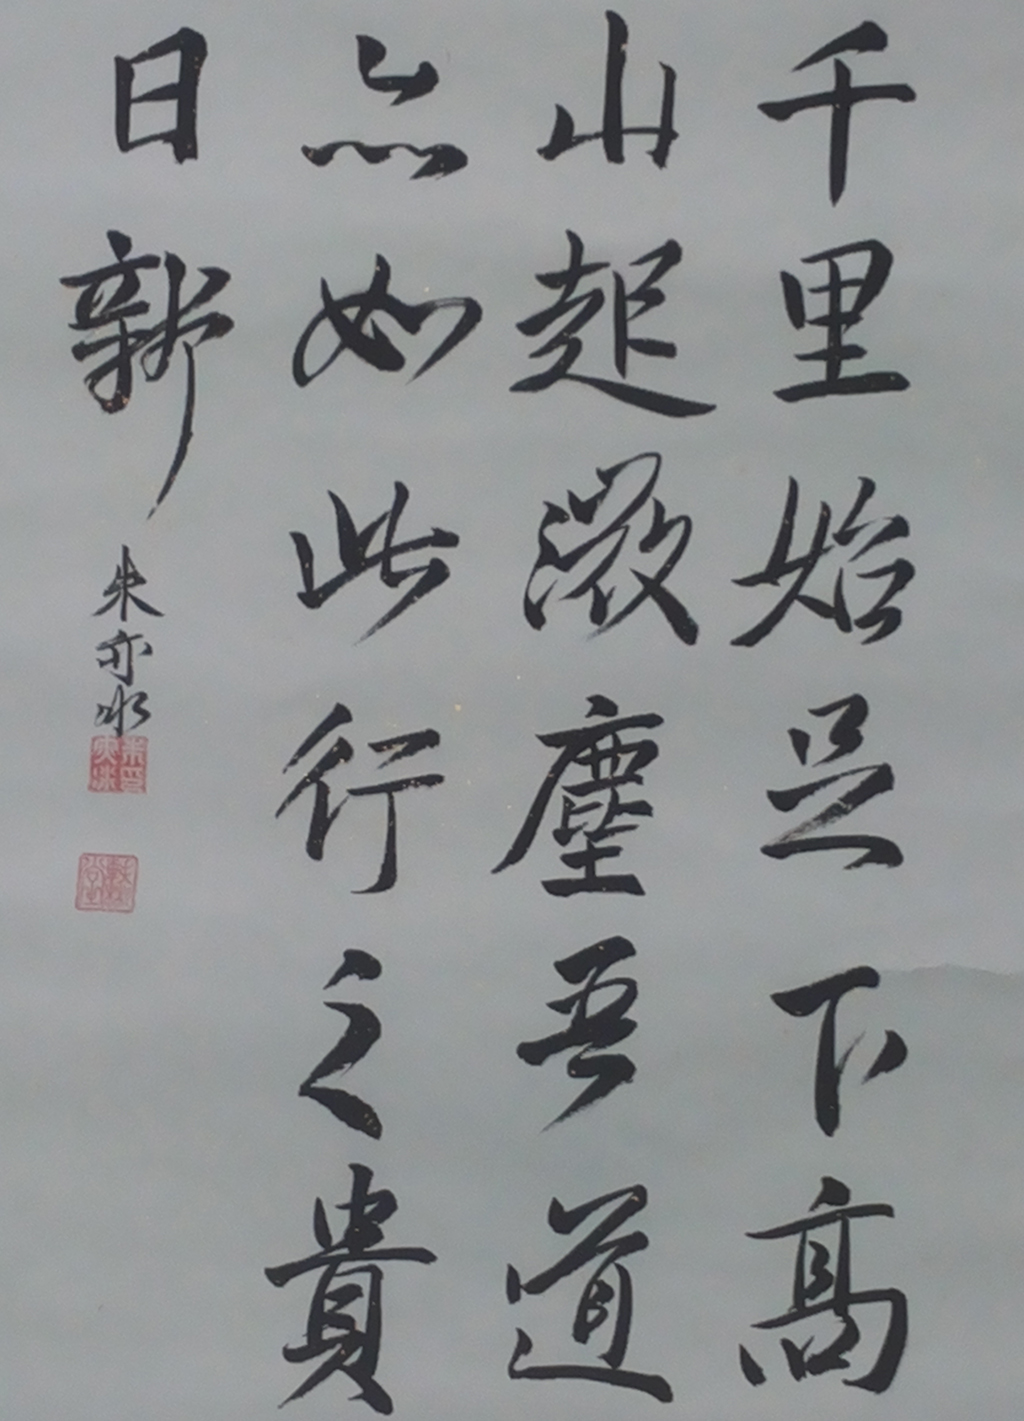 千里始足下高
山起微塵吾道
亦如此行之貴
日新
朱亦冰